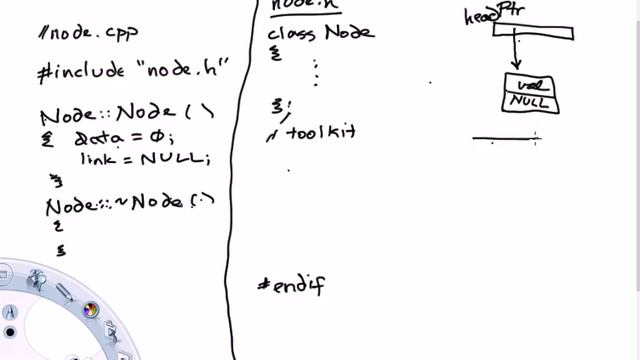 //node.cpp
#include "node.h"
Node::Node()
{ data = 0;
link = NULL;
}
Node::~Node()
{
}
node.h
class Node
{
};
// toolkit
#endif
headPtr
val
NULL